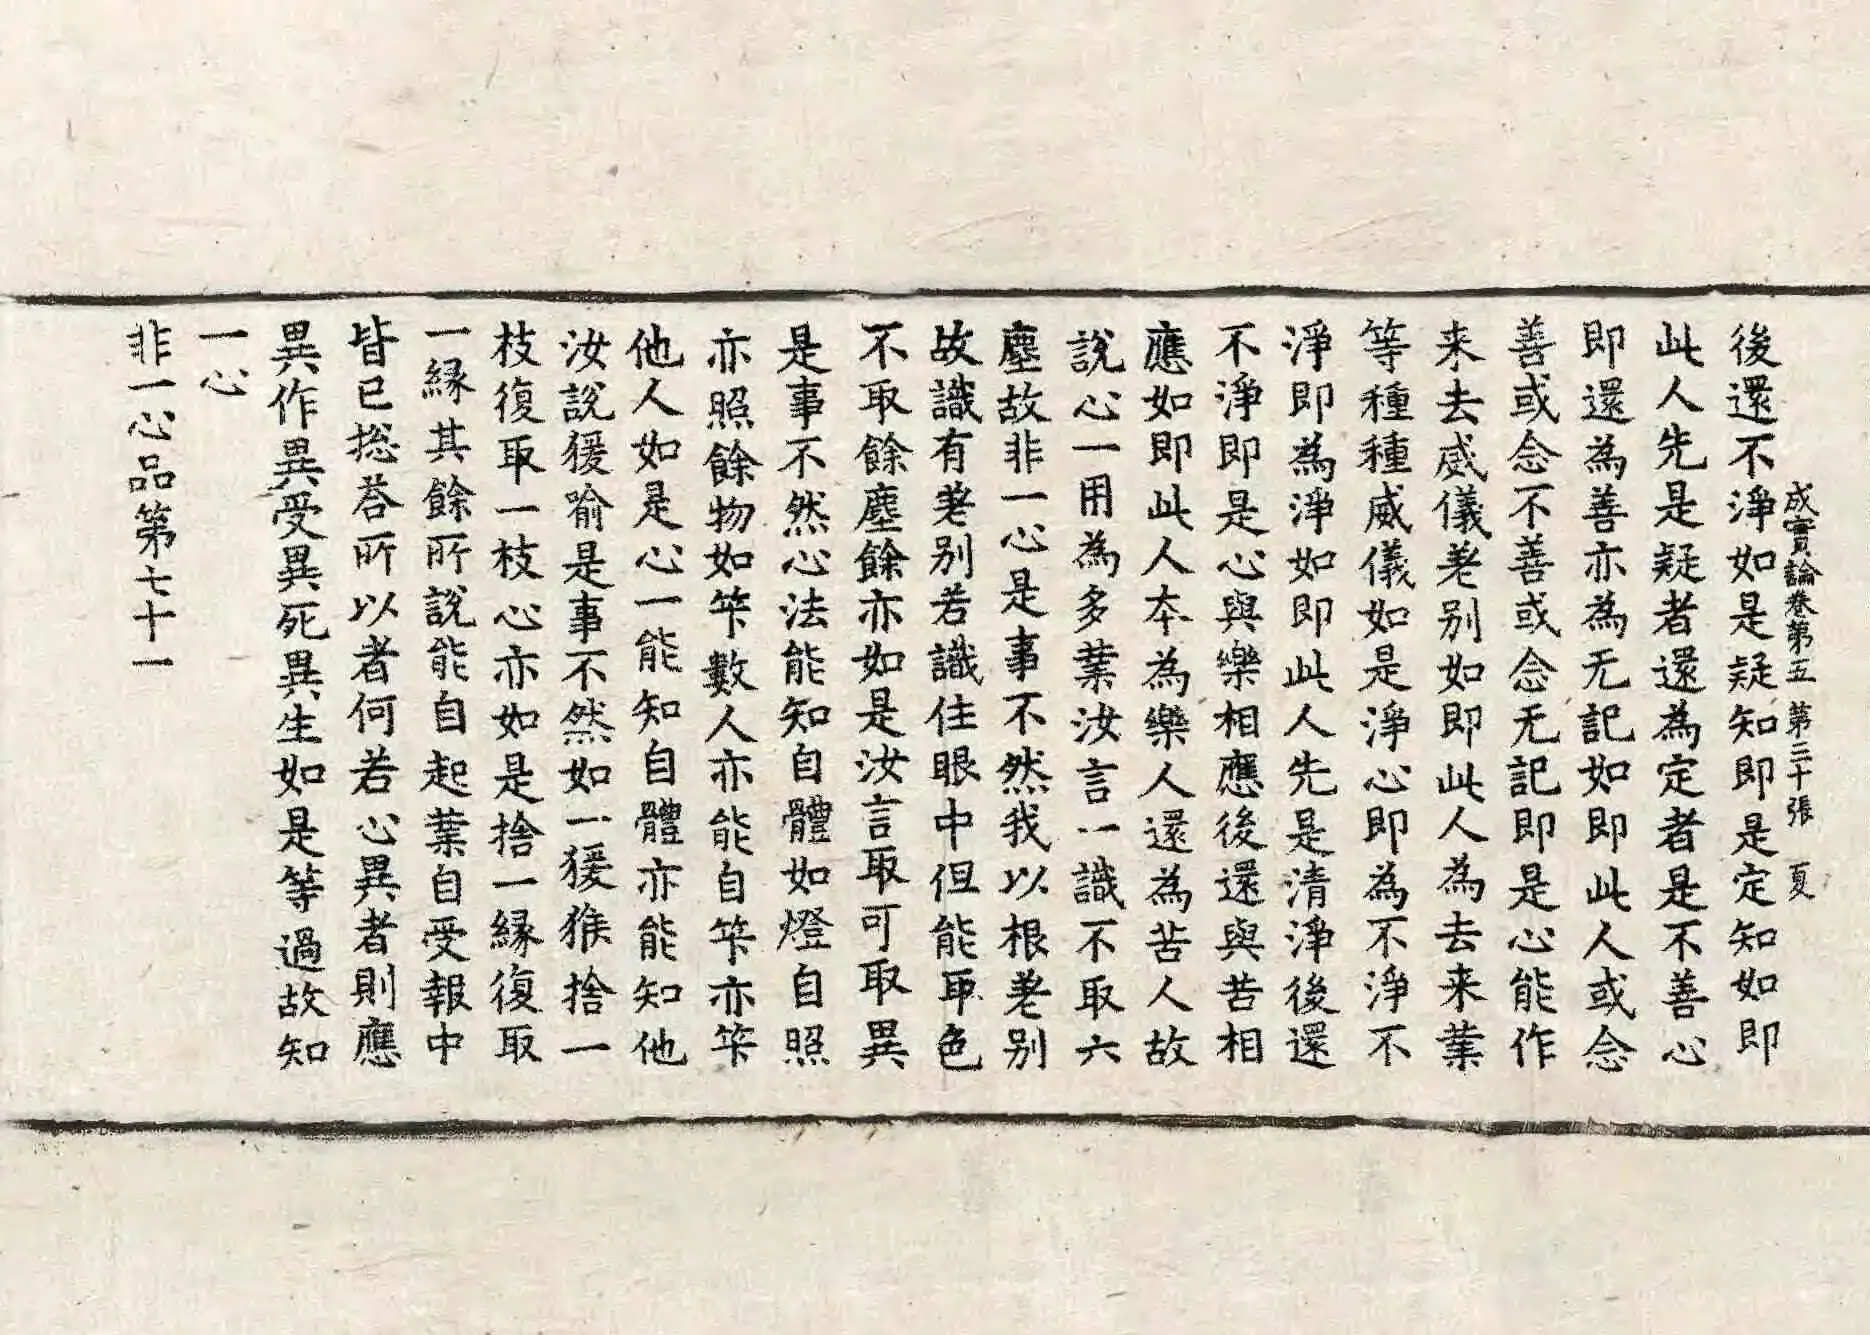 成實論卷第五 第三十張 夏
後還不淨如是疑知即是定知如即
此人先是疑者還為定者是不善心
即還為善亦為无記如即此人或念
善或念不善或念无記即是心能作
来去威儀差别如即此人為去来業
等種種威儀如是淨心即為不淨不
淨即為淨如即此人先是清淨後還
不淨即是心與樂相應後還與苦相
應如即此人本為樂人還為苦人故
說心一用為多業汝言一識不取六
塵故非一心是事不然我以根差别
故識有差别若識住眼中但能取色
不取餘塵餘亦如是汝言取可取異
是事不然心法能知自體如燈自照
亦照餘物如笇數人亦能自笇亦笇
他人如是心一能知自體亦能知他
汝說猨喻是事不然如一猨猴捨一
枝復取一枝心亦如是捨一縁復取
一縁其餘所說能自起業自受報中
皆已捴荅所以者何若心異者則應
異作異受異死異生如是等過故知
一心
非一心品第七十一